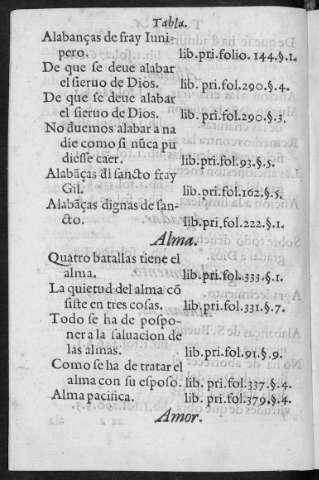 Tabla.
Alabanças de fray Iuni-
pero. lib. pri. folio. 144. §. 1.
De que se deue alabar
el sieruo de Dios. lib. pri. fol. 290. §. 4.
De que se deue alabar
el sieruo de Dios. lib. pri. fol. 290. §. 3.
No duemos alabar a na
die como si nũca pu
diesse caer. lib. pri. fol. 93. §. 5.
Alabãças dl sancto fray
Gil. lib. pri. fol. 162. §. 5.
Alabãças dignas de san-
cto. lib. pri. fol. 222. §. 1.
Alma.
Quatro batallas tiene el
alma. lib. pri. fol. 333. §. 1.
La quietud del alma cõ
siste en tres cosas. lib. pri. fol. 331. §. 7.
Todo se ha de pospo-
ner a la saluacion de
las almas. lib. pri. fol. 91. §. 9.
Como se ha de tratar el
alma con su esposo. lib. pri. fol. 337. §. 4.
Alma pacifica. lib. pri. fol. 379. §. 4.
Amor.